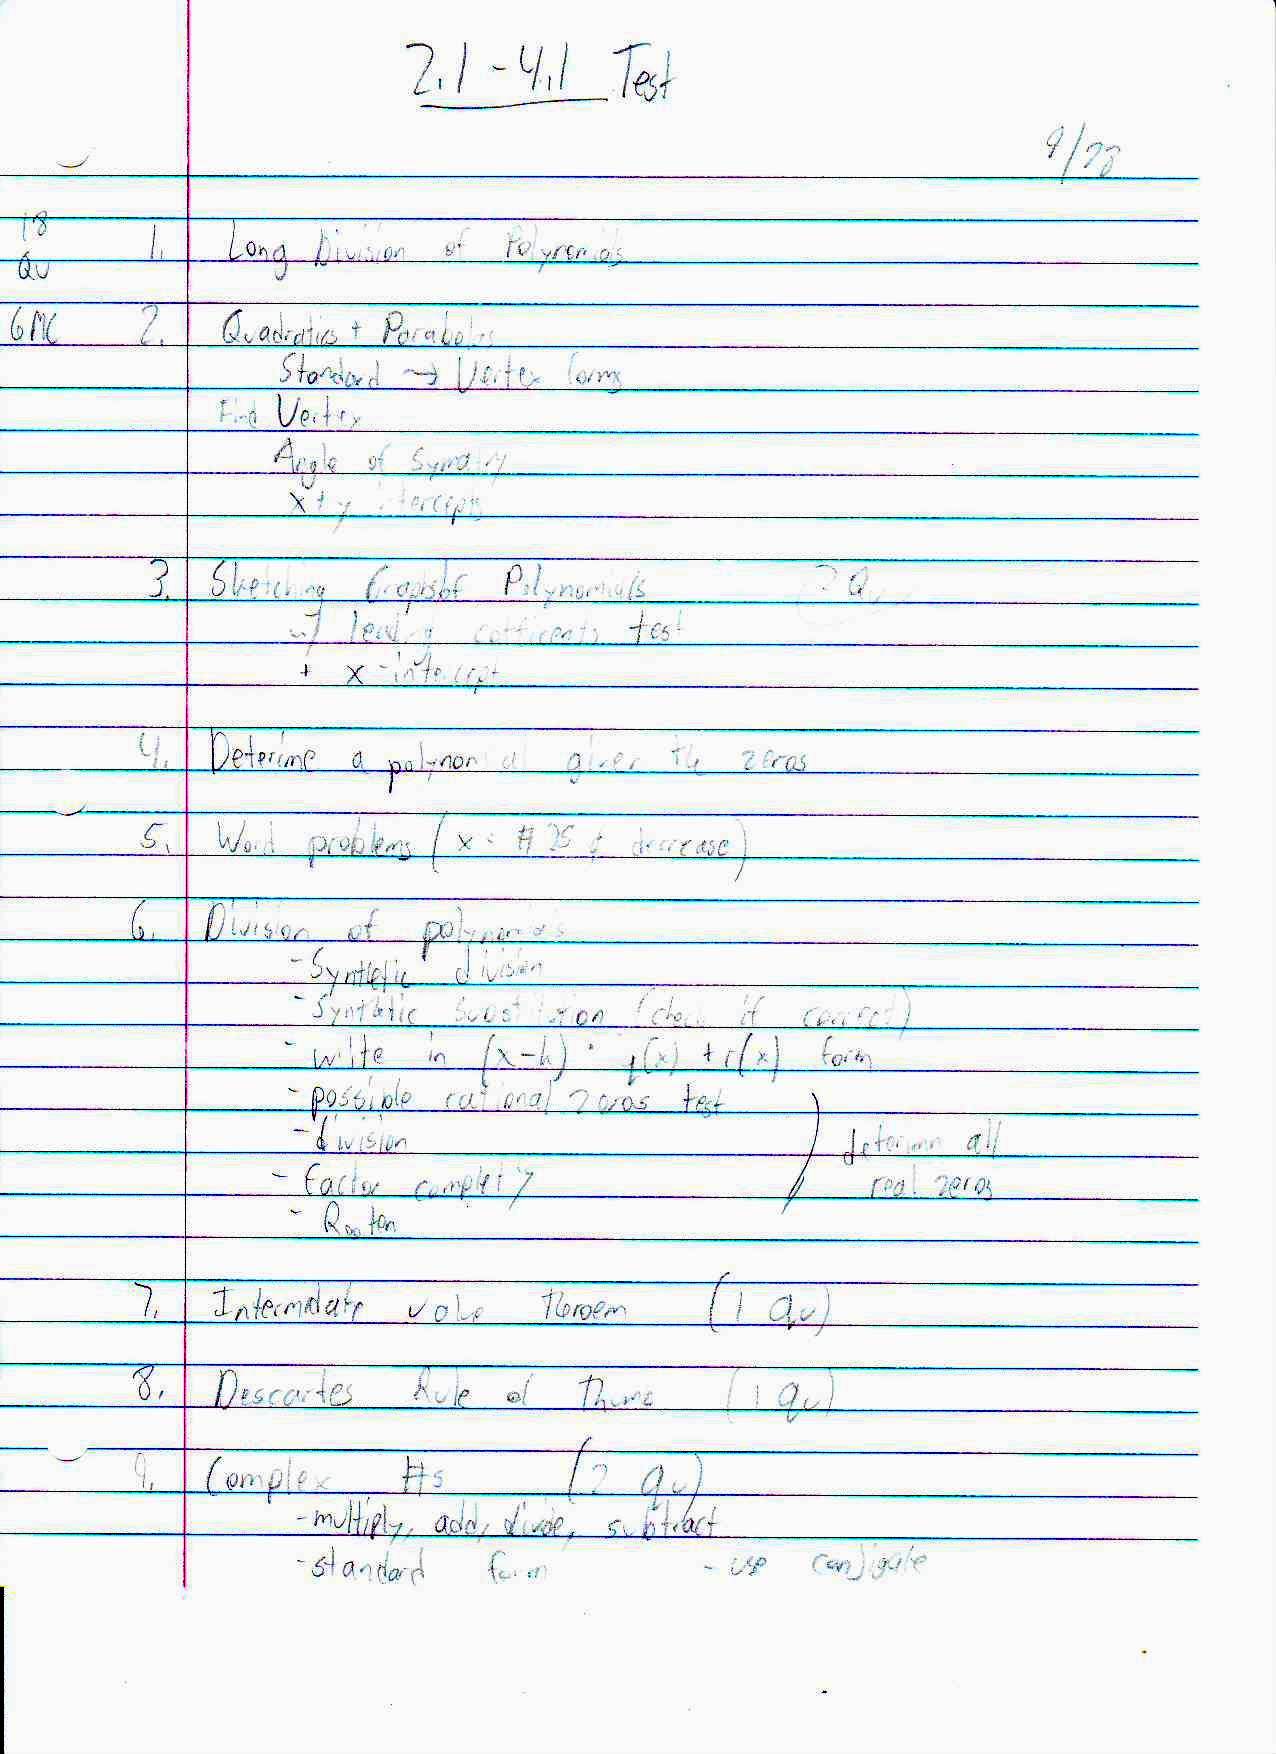 2.1 - 4.1 Test
9/28
18 Qu
1. Long Division of Polynomials
6 MC 2. Quadratics + Parabolas
Standard → Vertex forms
Find Vertex
Angle of Symatry
x + y intercepts
3. Sketching Graphs of Polynomials 2 Qu
→ leading cofficents test
+ x-intercept
4. Deterime a polynomial given the zeros
5. Word problems (x = # 25 ¢ decrease)
6. Division of polynomials
- Synthetic division
- Synthetic Substitution (check if correct)
- write in (x-k) · q(x) + r(x) form
- possible rational zeros test
- division
determin all
- factor completly
real zeros
7. Intermediate value theroem (1 qu)
8. Descartes Rule of Thumb (1 qu)
9. Complex #s (2 qu)
- multiply, add, divide, subtract
- standard form - use conjigate